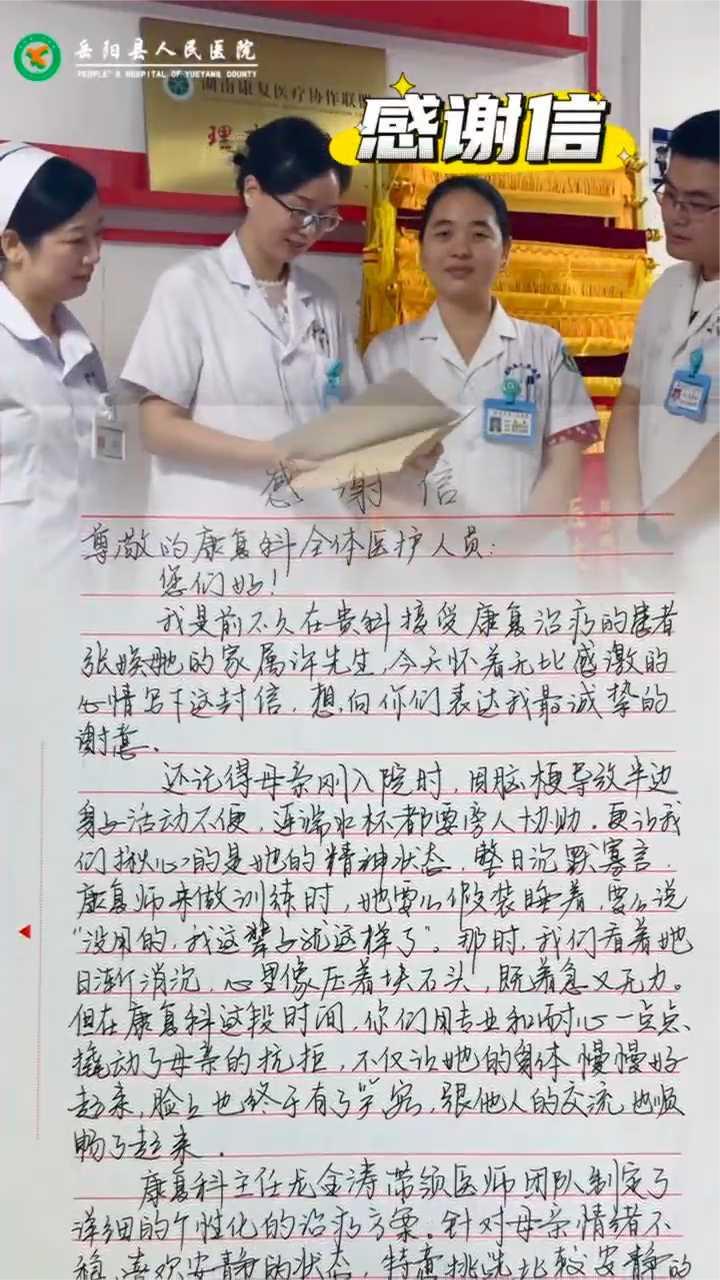 岳阳县人民医院
PEOPLE'S HOSPITAL OF YUEYANG COUNTY
湖南康复医疗协作联盟
理
感谢信
感谢信
尊敬的康复科全体医护人员：
您们好！
我是前不久在贵科接受康复治疗的患者
张娭毑的家属许先生，今天怀着无比感激的
心情写下这封信，想向你们表达我最诚挚的
谢意。
还记得母亲刚入院时，因脑梗导致半边
身子活动不便，连端水杯都要旁人协助。更让我
们揪心的是她的精神状态，整日沉默寡言，
康复师来做训练时，她要么假装睡着，要么说
“没用的，我这辈子就这样了”。那时，我们看着她
日渐消沉，心里像压着块石头，既着急又无力。
但在康复科这段时间，你们用专业和耐心一点点
撬动了母亲的抗拒，不仅让她的身体慢慢好
起来，脸上也终于有了笑容，跟他人的交流也顺
畅了起来。
康复科主任龙金涛带领医师团队制定了
详细的个性化的治疗方案。针对母亲情绪不
稳，喜欢安静的状态，特意挑选比较安静的